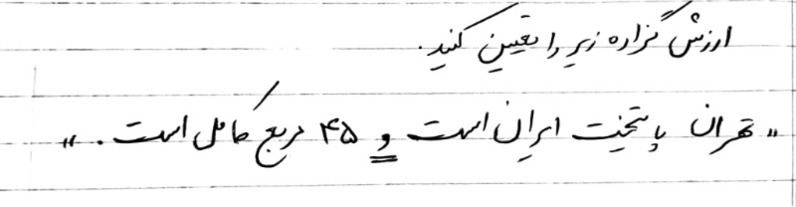 ارزش گزاره زیر را تعیین کنید.
"تهران پایتخت ایران است و ۴۵ مربع کامل است."